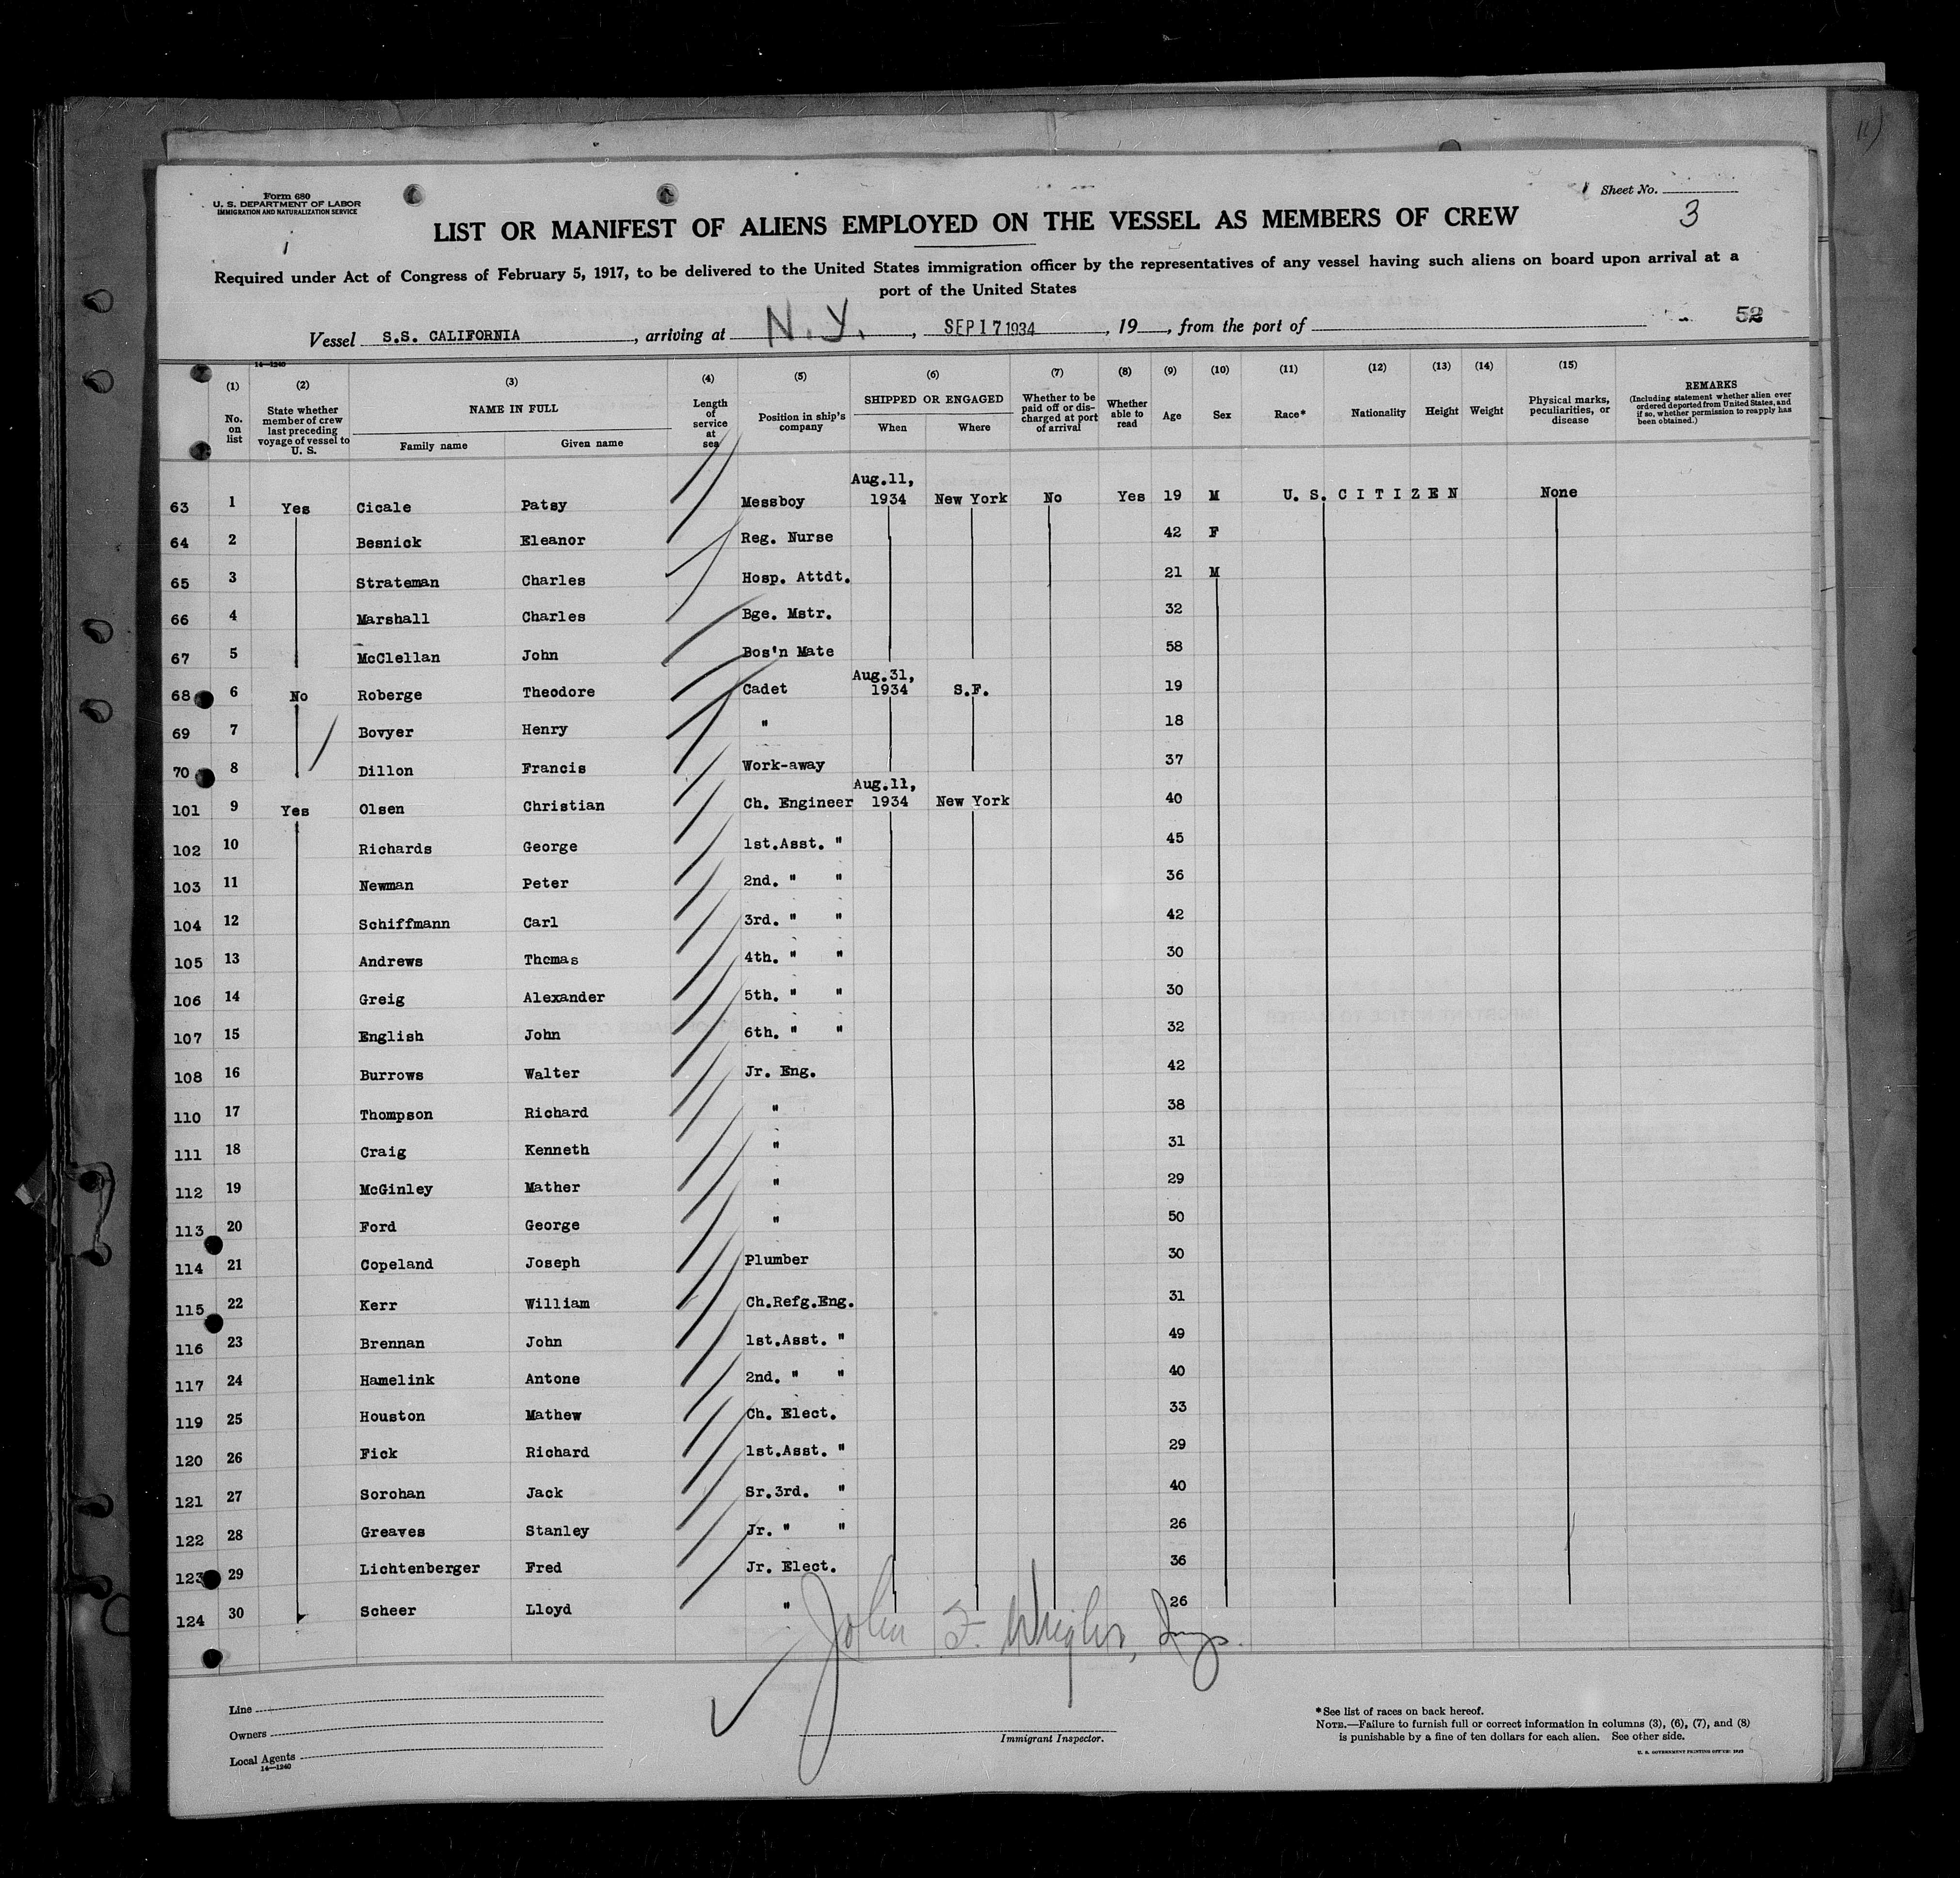 Form 680
U. S. DEPARTMENT OF LABOR
IMMIGRATION AND NATURALIZATION SERVICE
Sheet No.
3
LIST OR MANIFEST OF ALIENS EMPLOYED ON THE VESSEL AS MEMBERS OF CREW
Required under Act of Congress of February 5, 1917, to be delivered to the United States immigration officer by the representatives of any vessel having such aliens on board upon arrival at a
port of the United States
Vessel S.S. CALIFORNIA, arriving at N. Y., SEP 17 1934, 19, from the port of 52
14—1240
(1) (2) (3) (4) (5) (6) (7) (8) (9) (10) (11) (12) (13) (14) (15)
No. on list State whether member of crew last preceding voyage of vessel to U. S. NAME IN FULL Family name Given name Length of service at sea Position in ship's company SHIPPED OR ENGAGED When Where Whether to be paid off or discharged at port of arrival Whether able to read Age Sex Race* Nationality Height Weight Physical marks, peculiarities, or disease REMARKS (Including statement whether alien ever ordered deported from United States, and if so, whether permission to reapply has been obtained.)
63 1 Yes Cicale Patsy Messboy Aug.11, 1934 New York No Yes 19 M U. S. C I T I Z E N None
64 2 Besnick Eleanor Reg. Nurse 42 F
65 3 Strateman Charles Hosp. Attdt. 21 M
66 4 Marshall Charles Bge. Mstr. 32
67 5 McClellan John Bos'n Mate 58
68 6 No Roberge Theodore Cadet Aug.31, 1934 S.F. 19
69 7 Bovyer Henry " 18
70 8 Dillon Francis Work-away 37
101 9 Yes Olsen Christian Ch. Engineer Aug.11, 1934 New York 40
102 10 Richards George 1st.Asst. " 45
103 11 Newman Peter 2nd. " " 36
104 12 Schiffmann Carl 3rd. " " 42
105 13 Andrews Thomas 4th. " " 30
106 14 Greig Alexander 5th. " " 30
107 15 English John 6th. " " 32
108 16 Burrows Walter Jr. Eng. 42
110 17 Thompson Richard " 38
111 18 Craig Kenneth " 31
112 19 McGinley Mather " 29
113 20 Ford George " 50
114 21 Copeland Joseph Plumber 30
115 22 Kerr William Ch.Refg.Eng. 31
116 23 Brennan John 1st.Asst. " 49
117 24 Hamelink Antone 2nd. " " 40
119 25 Houston Mathew Ch. Elect. 33
120 26 Fick Richard 1st.Asst. " 29
121 27 Sorohan Jack Sr.3rd. " 40
122 28 Greaves Stanley Jr. " " 26
123 29 Lichtenberger Fred Jr. Elect. 36
124 30 Scheer Lloyd " 26
John F.
Line
Owners
Local Agents
14—1240
Immigrant Inspector.
*See list of races on back hereof.
NOTE.—Failure to furnish full or correct information in columns (3), (6), (7), and (8)
is punishable by a fine of ten dollars for each alien. See other side.
U. S. GOVERNMENT PRINTING OFFICE: